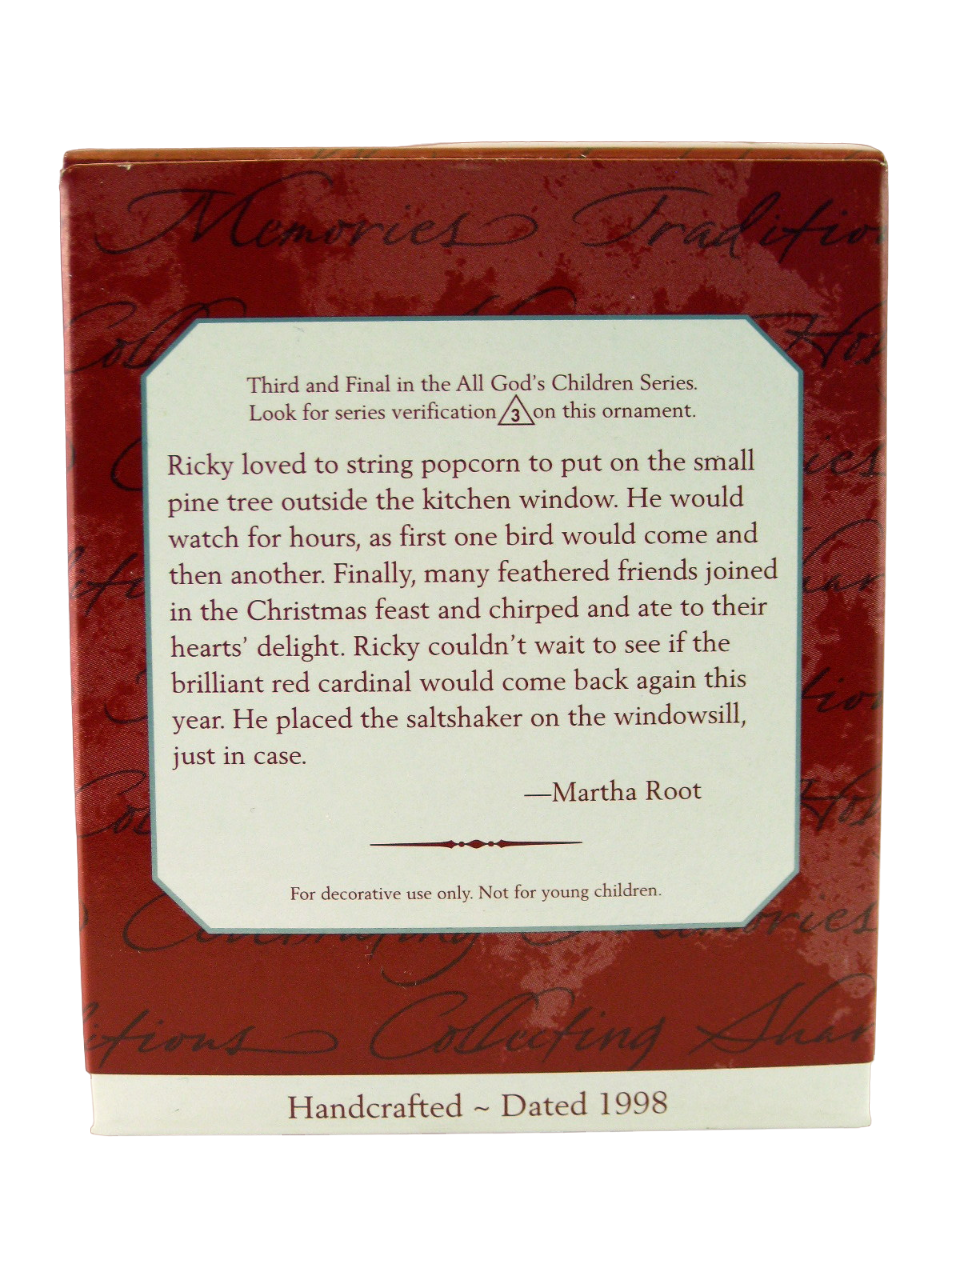 Memories Tradition
Third and Final in the All God's Children Series.
Look for series verification 3 on this ornament.
Ricky loved to string popcorn to put on the small
pine tree outside the kitchen window. He would
watch for hours, as first one bird would come and
then another. Finally, many feathered friends joined
in the Christmas feast and chirped and ate to their
hearts' delight. Ricky couldn't wait to see if the
brilliant red cardinal would come back again this
year. He placed the saltshaker on the windowsill,
just in case.
—Martha Root
For decorative use only. Not for young children.
Celebrating Memories
itions Collecting Shar
Handcrafted ~ Dated 1998